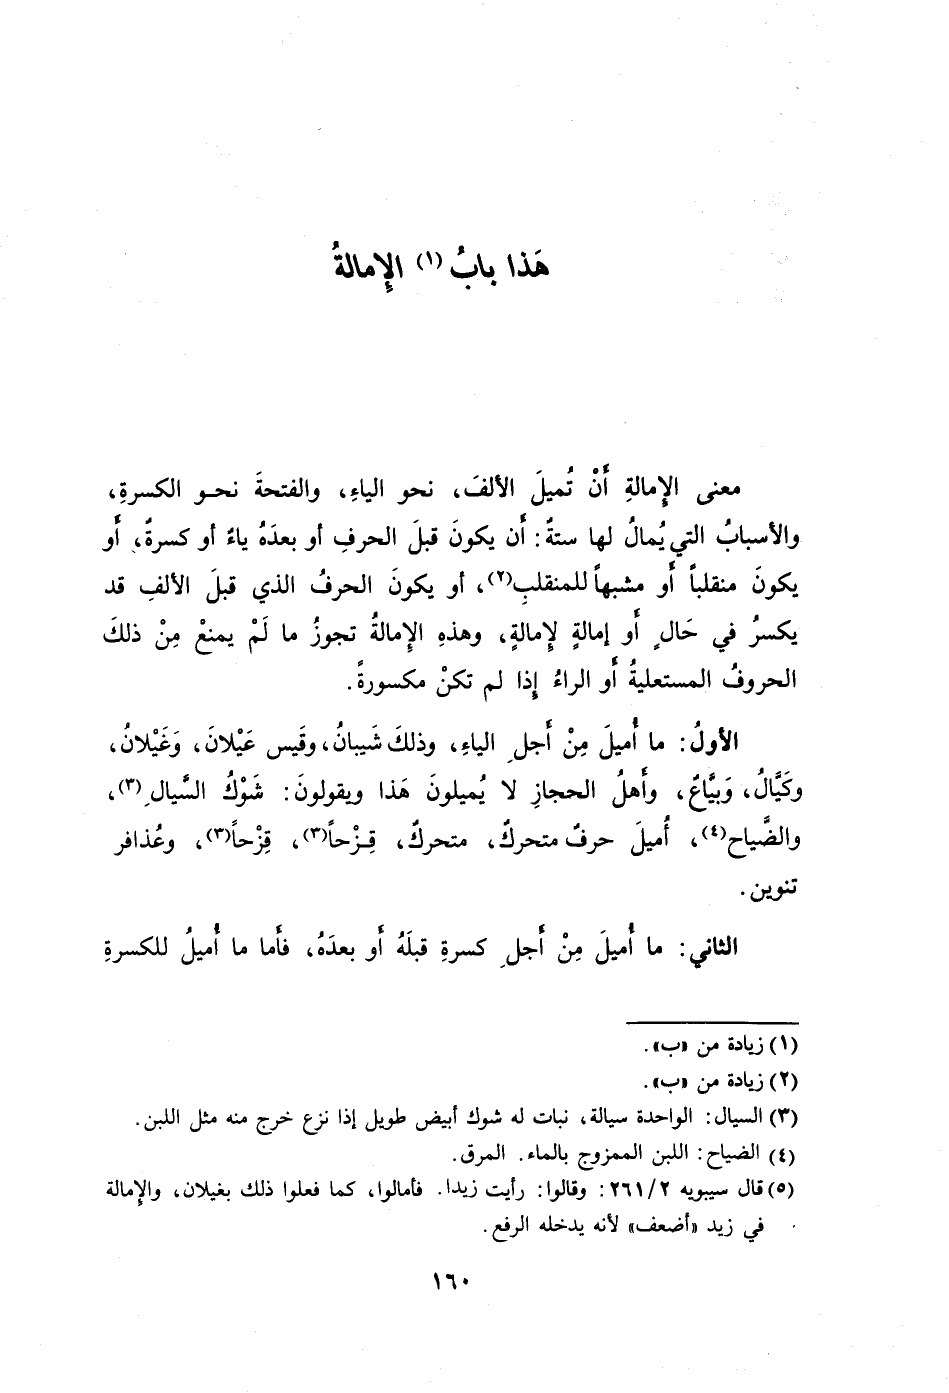 هَذا بابُ (١) الإِمالةُ
معنى الإِمالةِ أَنْ تُميلَ الألفَ، نحو الياءِ، والفتحةَ نحـو الكسرةِ،
والأسبابُ التي يُمالُ لها ستةٌ: أَن يكونَ قبلَ الحرفِ أو بعدَهُ ياءٌ أو كسرةٌ، أَو
يكونَ منقلباً أَو مشبهاً للمنقلبِ(٢)، أو يكونَ الحرفُ الذي قبلَ الألفِ قد
يكسرُ في حَالٍ أَو إمالةٍ لإِمالةٍ، وهذهِ الإِمالةُ تجوزُ ما لَمْ يمنعْ مِنْ ذلكَ
الحروفُ المستعليةُ أَو الراءُ إِذا لم تكنْ مكسورةً.
الأولُ: ما أُميلَ مِنْ أَجلِ الياءِ، وذلكَ شَيبانُ، وقَيس عَيْلانَ، وَغَيْلانُ،
وكَيَّالُ، وَبيَّاعٌ، وأَهلُ الحجازِ لا يُميلونَ هَذا ويقولونَ: شَوْكُ السَّيالِ(٣)،
والضَّياح(٤)، أُميلَ حرفٌ متحركٌ، متحركٌ، قِـزْحاً(٣)، قِزْحاً(٣)، وعُذافر
تنوين.
الثاني: ما أُميلَ مِنْ أَجلِ كسرةِ قبلَهُ أَو بعدَهُ، فأَما ما أُميلُ للكسرةِ
(١) زيادة من «ب».
(٢) زيادة من «ب».
(٣) السيال: الواحدة سيالة، نبات له شوك أبيض طويل إذا نزع خرج منه مثل اللبن.
(٤) الضياح: اللبن الممزوج بالماء. المرق.
(٥) قال سيبويه ٢/ ٢٦١: وقالوا: رأيت زيدا. فأمالوا، كما فعلوا ذلك بغيلان، والإِمالة
في زيد «أضعف» لأنه يدخله الرفع.
١٦٠